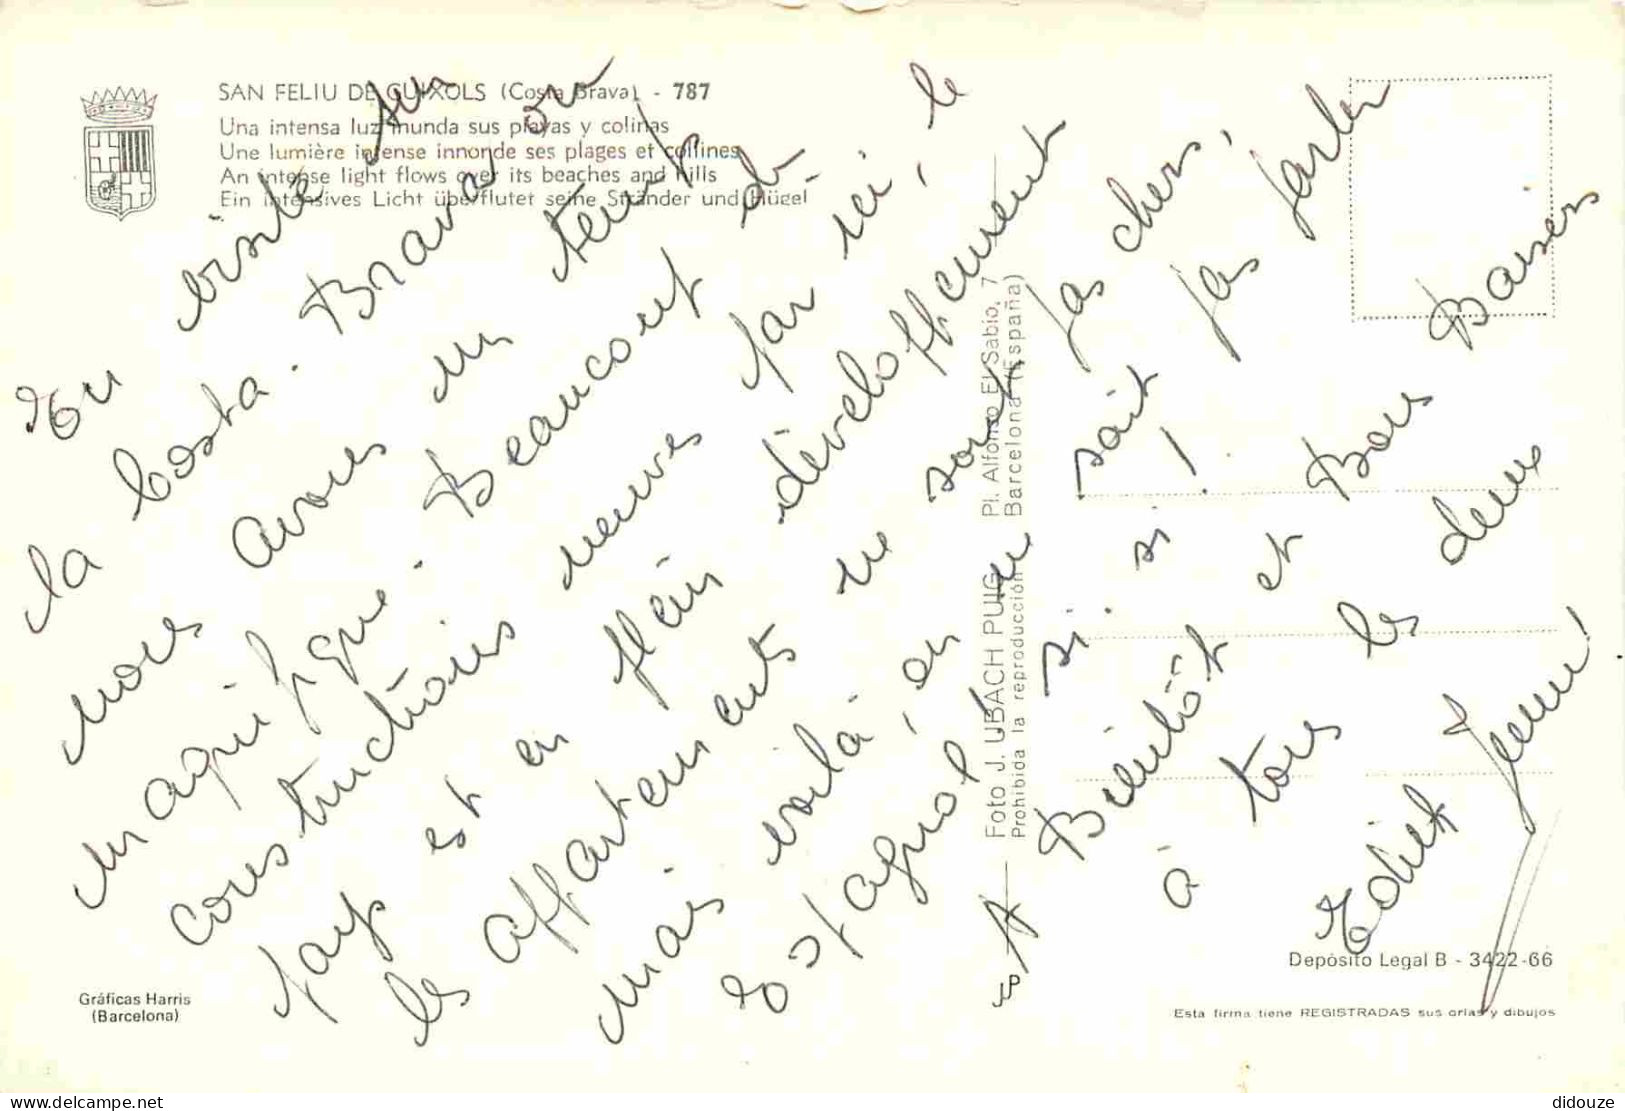 SAN FELIU DE GUIXOLS (Costa Brava) - 787
Una intensa luz inunda sus playas y colinas
Une lumière intense innonde ses plages et collines
An intense light flows over its beaches and hills
Ein intensives Licht überflutet seine Stränder und Hügel
En visite sur
la Costa. Brava où
nous avons un temps
magnifique. Beaucoup de
constructions neuves par ici, le
pays est en plein développement
les appartements ne sont pas chers,
mais voilà, en ne sait pas parler
Espagnol si. si. si !
A Bientôt et Bons Baisers
à tous les deux
Edith
Foto J. UBACH PUIG Pl. Alfonso El Sabio, 7
Prohibida la reproducción Barcelona (España)
Gráficas Harris
(Barcelona)
Depósito Legal B - 3422-66
Esta firma tiene REGISTRADAS sus orlas y dibujos
Delcampe.net
didouze